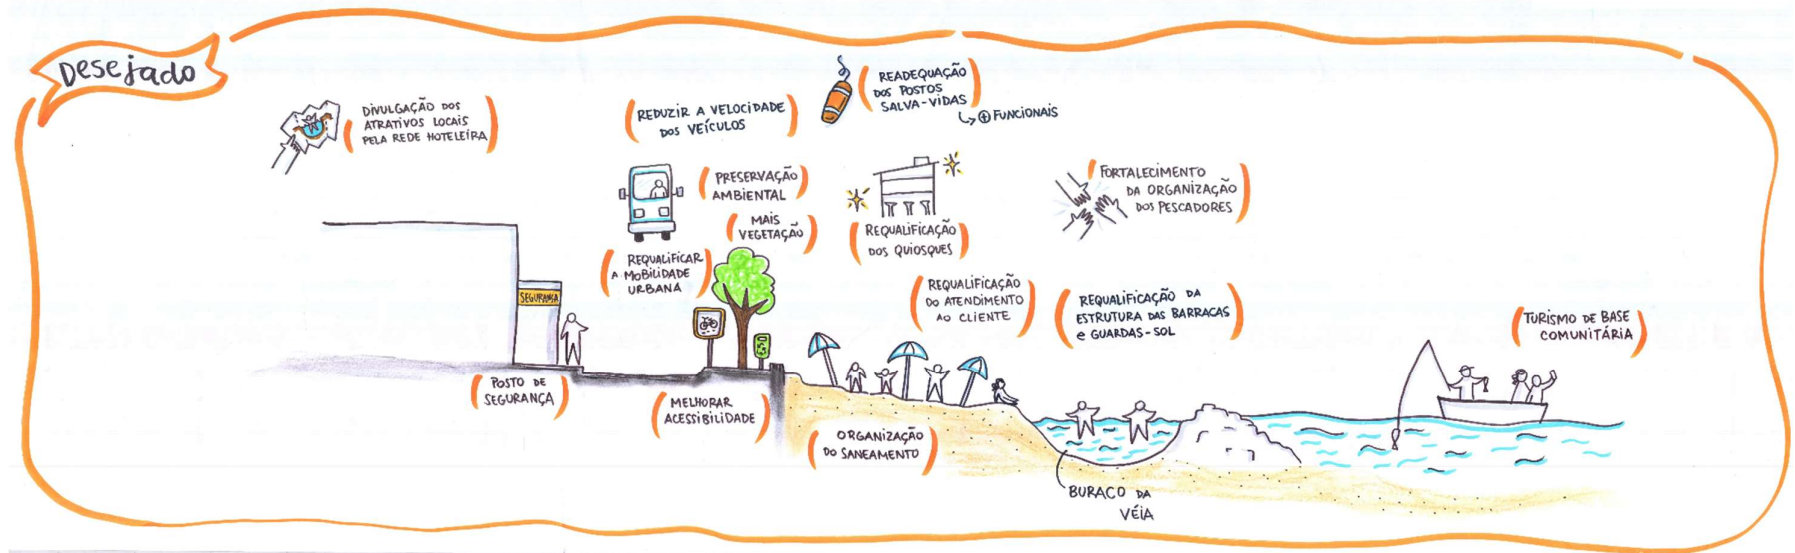 Desejado
DIVULGAÇÃO DOS
ATRATIVOS LOCAIS
PELA REDE HOTELEIRA
REDUZIR A VELOCIDADE
DOS VEÍCULOS
READEQUAÇÃO
DOS POSTOS
SALVA-VIDAS
⊕ FUNCIONAIS
PRESERVAÇÃO
AMBIENTAL
MAIS
VEGETAÇÃO
REQUALIFICAR
A MOBILIDADE
URBANA
REQUALIFICAÇÃO
DOS QUIOSQUES
FORTALECIMENTO
DA ORGANIZAÇÃO
DOS PESCADORES
SEGURANÇA
REQUALIFICAÇÃO
DO ATENDIMENTO
AO CLIENTE
REQUALIFICAÇÃO DA
ESTRUTURA DAS BARRACAS
e GUARDAS-SOL
TURISMO DE BASE
COMUNITÁRIA
POSTO DE
SEGURANÇA
MELHORAR
ACESSIBILIDADE
ORGANIZAÇÃO
DO SANEAMENTO
BURACO DA
VÉIA